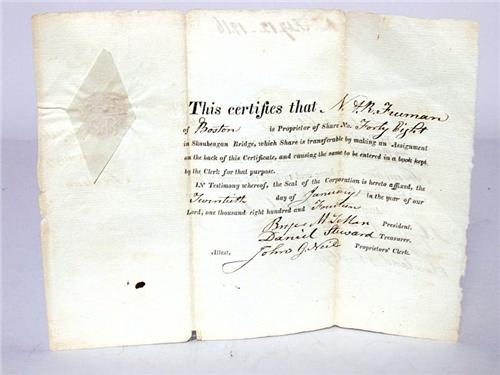 This certifies that N. & R. Freeman
of Boston is Proprietor of Share No. Forty Eight
in Skouhengan Bridge, which Share is transferable by making an Assignment
on the back of this Certificate, and causing the same to be entered in a book kept
by the Clerk for that purpose.
IN Testimony whereof, the Seal of the Corporation is hereto affixed, the
Twentieth day of January in the year of our
Lord, one thousand eight hundred and Fourteen
President.
Daniel Steward Treasurer.
Attest, John G. Neil Proprietors' Clerk.